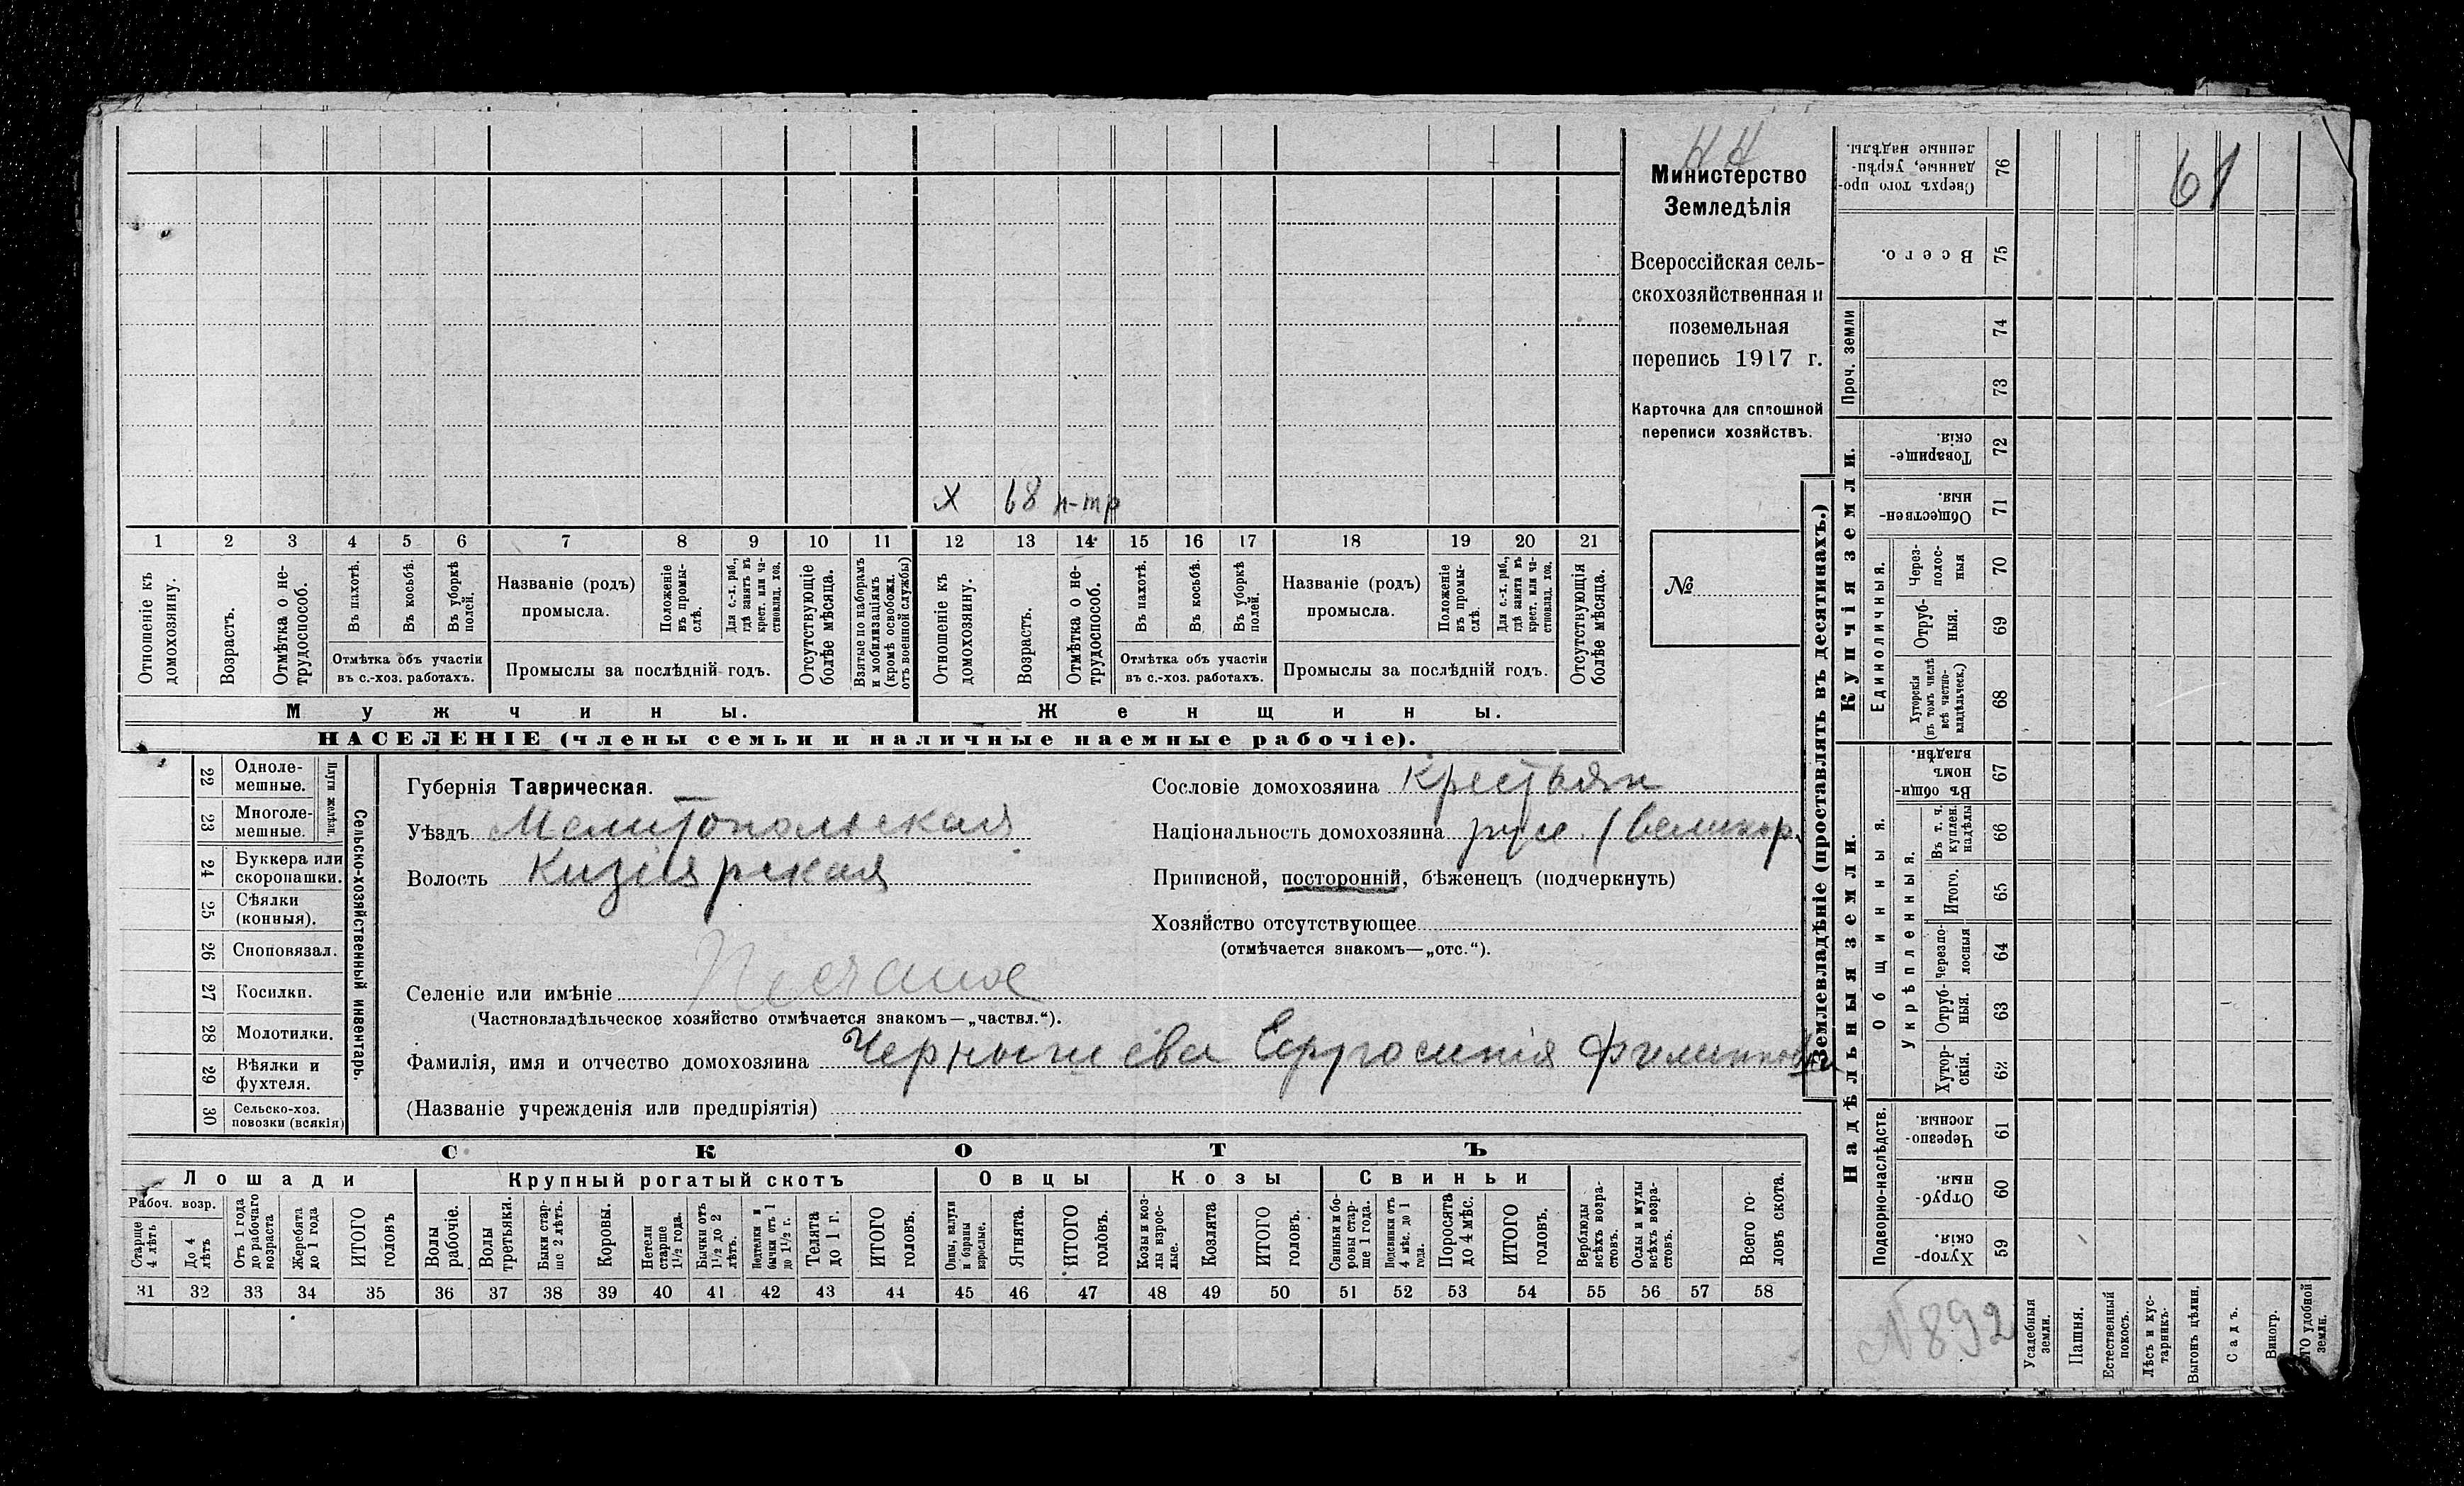 61
НН
Министерство
Земледѣлія
Всероссійская сель-
скохозяйственная и
поземельная
перепись 1917 г.
Карточка для сплошной
переписи хозяйствъ.
№
х 68 н-тр
1 2 3 4 5 6 7 8 9 10 11 12 13 14 15 16 17 18 19 20 21
Отношеніе къ домохозяину.
Возрастъ.
Отмѣтка о не-трудоспособ.
Въ пахотѣ.
Въ косьбѣ.
Въ уборкѣ полей.
Отмѣтка объ участіи
въ с.-хоз. работахъ.
Названіе (родъ)
промысла.
Положеніе въ промы-слѣ.
Для с.-х. раб., гдѣ занятъ въ крест. или ча-стновлад. хоз.
Промыслы за послѣдній годъ.
Отсутствующіе болѣе мѣсяца.
Взятые по наборамъ и мобилизаціямъ (кромѣ освобожд. отъ военной службы)
Отношеніе къ домохозяину.
Возрастъ.
Отмѣтка о не-трудоспособ.
Въ пахотѣ.
Въ косьбѣ.
Въ уборкѣ полей.
Отмѣтка объ участіи
въ с.-хоз. работахъ.
Названіе (родъ)
промысла.
Положеніе въ промы-слѣ.
Для с.-х. раб., гдѣ занята въ крест. или ча-стновлад. хоз.
Промыслы за послѣдній годъ.
Отсутствующія болѣе мѣсяца.
Мужчины.
Женщины.
НАСЕЛЕНІЕ (члены семьи и наличные наемные рабочіе).
22 Одноле-мешные.
23 Многоле-мешные.
Плуги желѣзн.
24 Буккера или скоропашки.
25 Сѣялки (конныя).
26 Сноповязал.
27 Косилки.
28 Молотилки.
29 Вѣялки и фухтеля.
30 Сельско-хоз. повозки (всякія)
Сельско-хозяйственный инвентарь.
Губернія Таврическая.
Уѣздъ Мелитопольская
Волость Кизіярская
Селеніе или имѣніе Песчаное
(Частновладѣльческое хозяйство отмѣчается знакомъ—„частвл.“).
Фамилія, имя и отчество домохозяина Чернышева Ефросинія Филиппов
(Названіе учрежденія или предпріятія)
Сословіе домохозяина Крестьян
Національность домохозяина русс. (великор.
Приписной, посторонній, бѣженецъ (подчеркнуть)
Хозяйство отсутствующее
(отмѣчается знакомъ—„отс.“).
СКОТЪ
Лошади
Крупный рогатый скотъ
Овцы
Козы
Свиньи
Рабоч. возр.
Старше 4 лѣтъ
До 4 лѣтъ
Отъ 1 года до рабочаго возраста
Жеребята до 1 года
ИТОГО головъ
Волы рабочіе.
Волы третьяки.
Быки стар-ше 2 лѣтъ.
Коровы.
Нетели старше 1½ года.
Бычки отъ 1½ до 2 лѣтъ.
Нетелки и бычки отъ 1 до 1½ г.
Телята до 1 г.
ИТОГО головъ.
Овцы, валухи и бараны взрослые.
Ягнята.
ИТОГО головъ.
Козы и коз-лы взрос-лые.
Козлята
ИТОГО головъ.
Свиньи и бо-ровы стар-ше 1 года.
Подсвинки отъ 4 мѣс. до 1 года.
Поросята до 4 мѣс.
ИТОГО головъ.
Верблюды всѣхъ возра-стовъ.
Ослы и мулы всѣхъ возра-стовъ.
Всего го-ловъ скота.
31 32 33 34 35 36 37 38 39 40 41 42 43 44 45 46 47 48 49 50 51 52 53 54 55 56 57 58
Землевладѣніе (проставлять въ десятинахъ.)
Купчія земли.
Надѣльныя земли.
Сверхъ того про-данные, укрѣп-ленные надѣлы. 76
Всего. 75
Проч. земли 74
73
Товарище-скія. 72
Обществен-ныя. 71
Единоличныя.
Через-полос-ныя 70
Отруб-ныя. 69
Хуторскія (въ томъ числѣ всѣ частно-владѣльческ.) 68
Общинныя.
Въ общи-номъ владѣн. 67
Укрѣпленныя.
Въ т. ч. куплен. надѣлы 66
Итого. 65
Черезпо-лосныя 64
Отруб-ныя. 63
Хутор-скія. 62
Подворно-наслѣдств.
Черезпо-лосныя 61
Отруб-ныя. 60
Хутор-скія. 59
N 892
Усадебныя земли.
Пашня.
Естественный покосъ.
Лѣсъ и кус-тарникъ.
Выгонъ цѣлин.
Садъ.
Виногр.
ГО удобной земли.